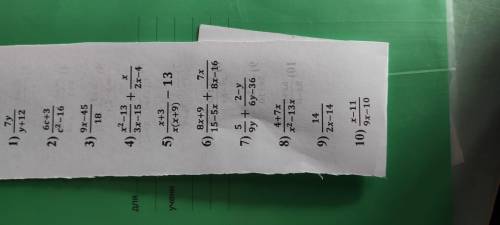 1) 7y/(y+12)
2) (6c+3)/(c²−16)
3) (9x−45)/18
4) (x²−13)/(3x−15) + x/(2x−4)
5) (x+3)/(x(x+9)) − 13
6) (8x+9)/(15−5x) + 7x/(8x−16)
7) 5/(9y) + (2−y)/(6y−36)
8) (4+7x)/(x²−13x)
9) 14/(2x−14)
10) (x−11)/(9x−10)
для
учени